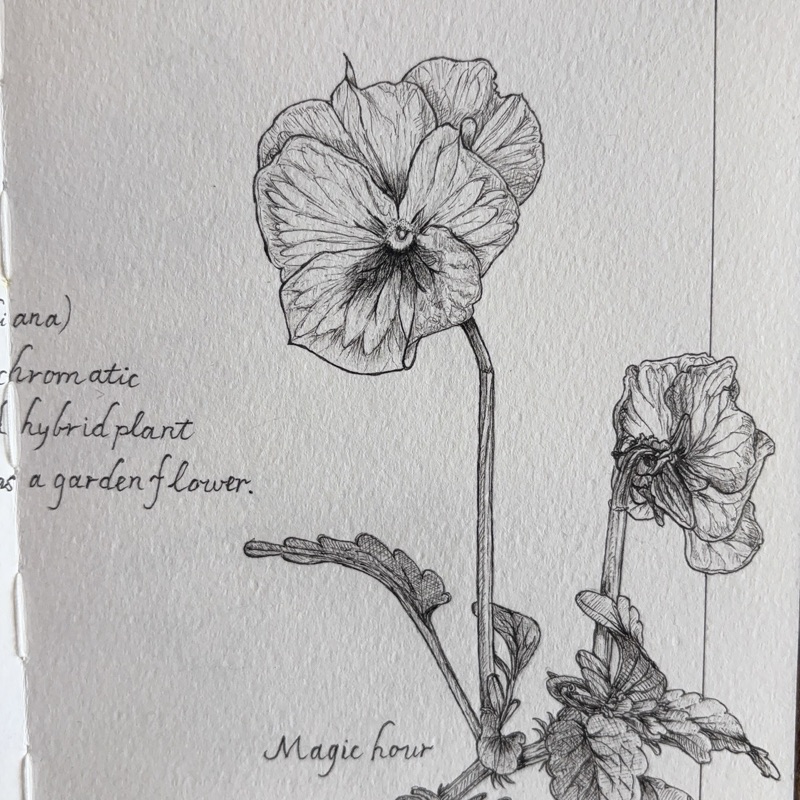 iana)
chromatic
hybrid plant
as a garden flower.
Magic hour